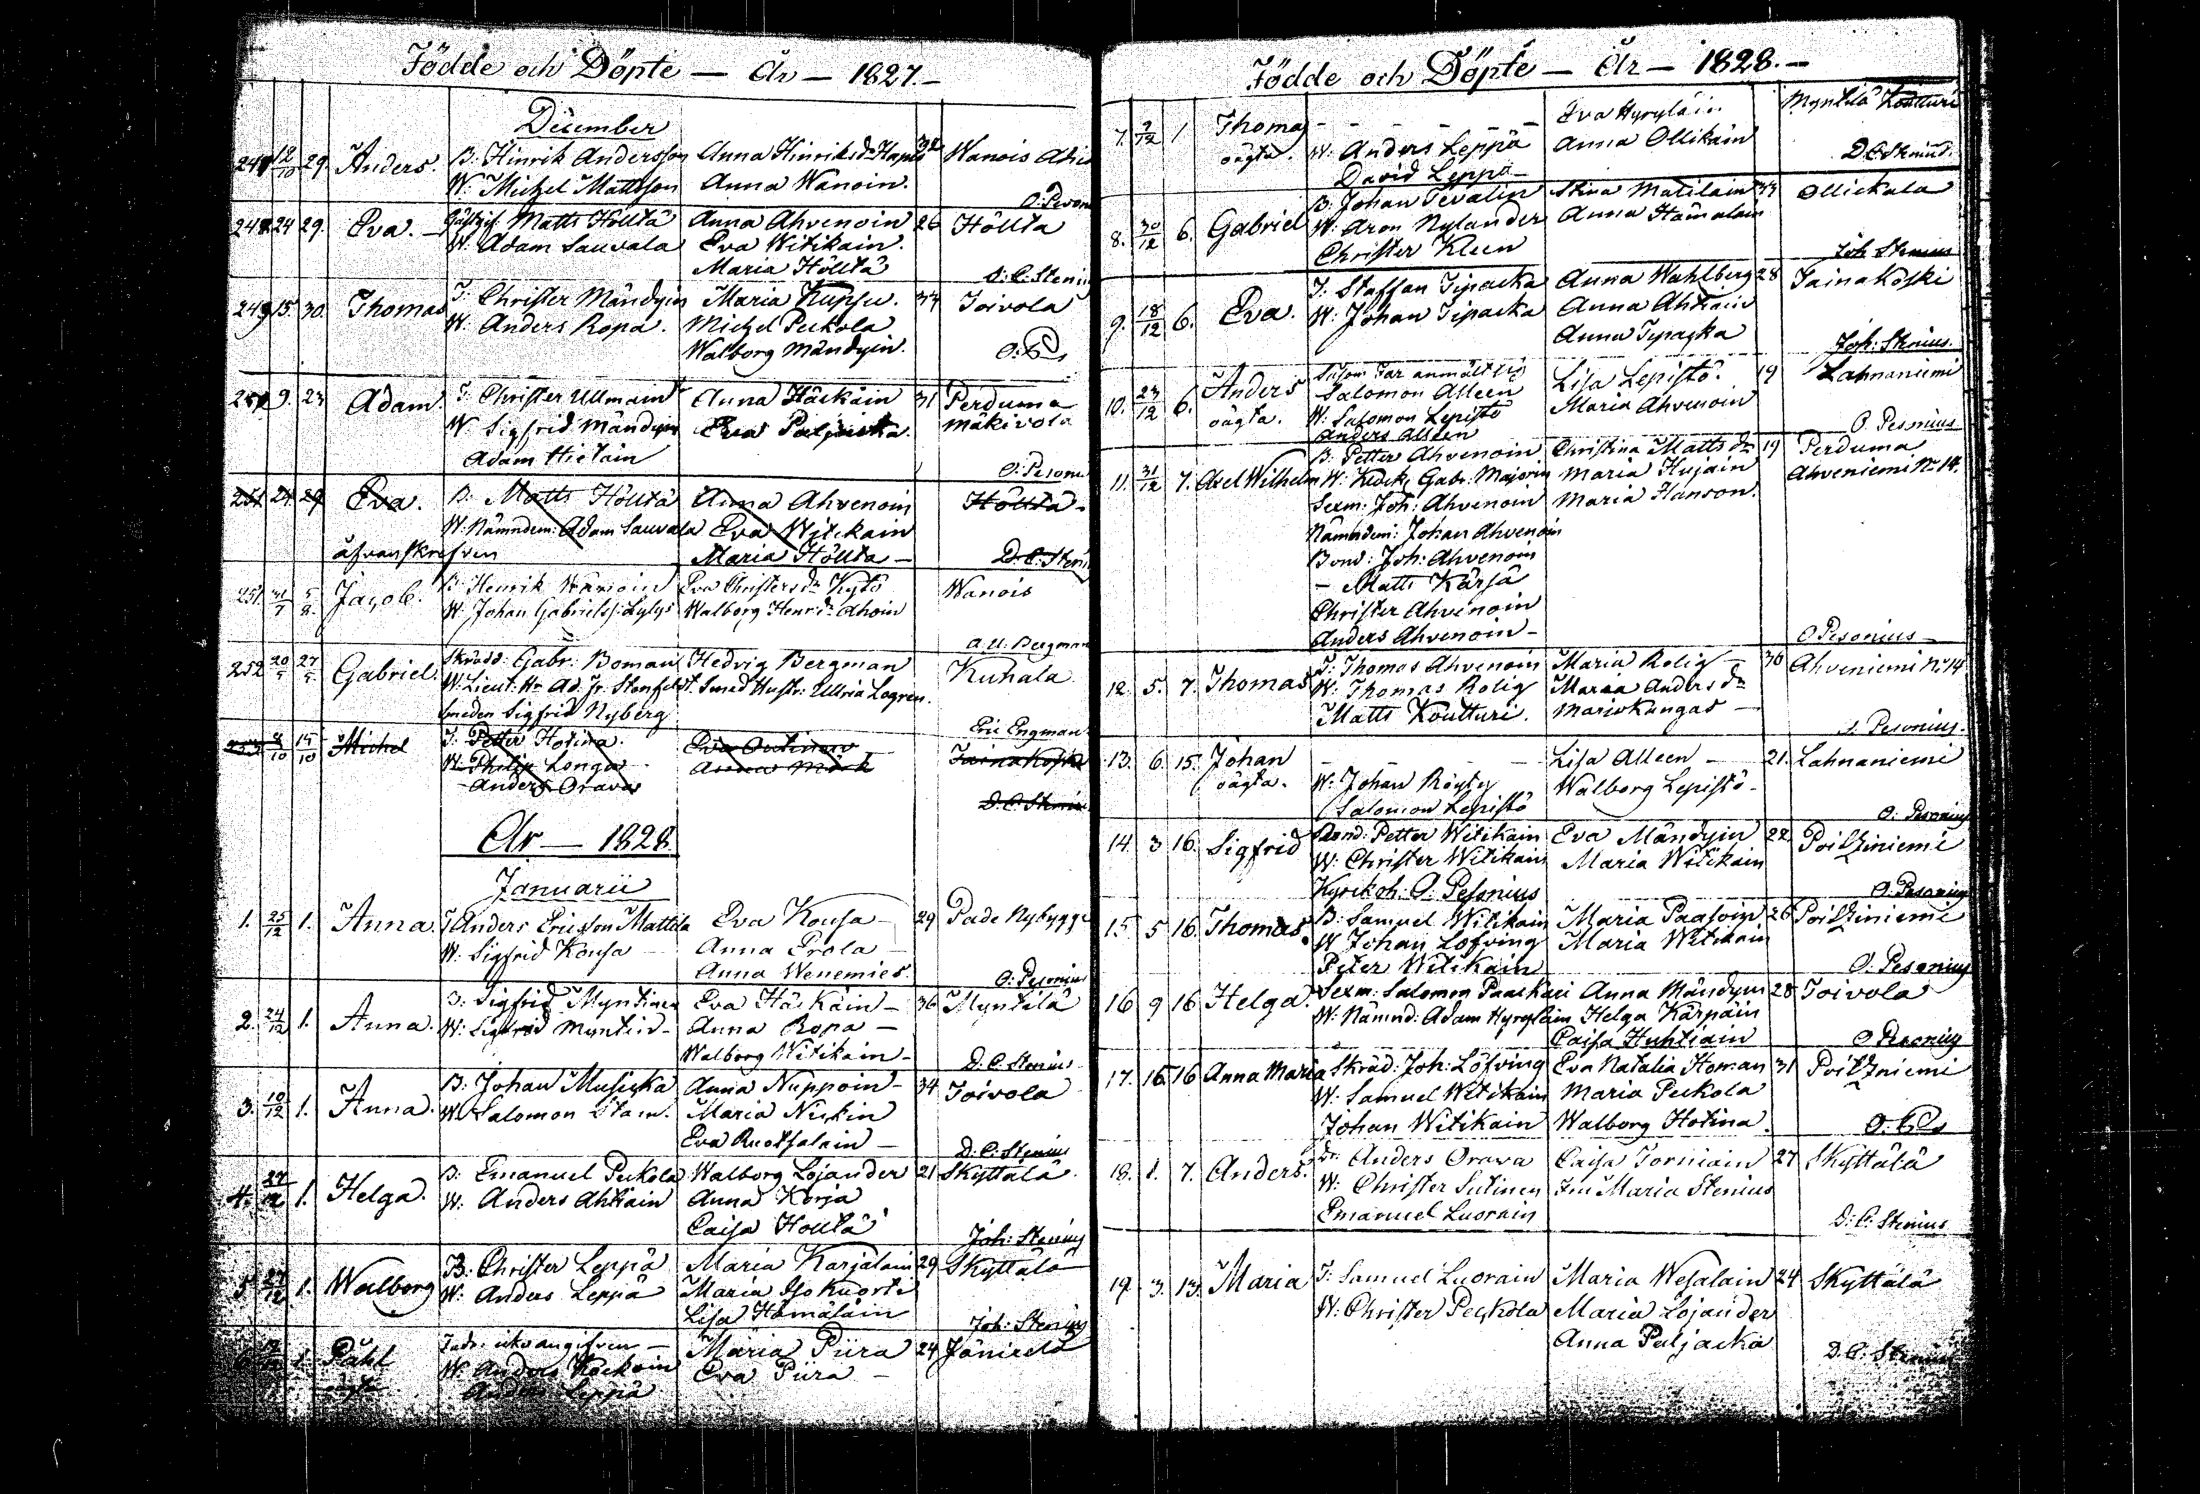 Födde och Döpte — År — 1827. —
December
247 12/10 29. Anders. B: Hinrik Andersson Anna Hinriksdr 32 Wanois
W: Michel Mattsson Anna Wanoin.
248 24 29. Eva. — Matts Höltta Anna Ahvenoin 26 Höltta
W: Adam Sauvala Eva Witikain.
Maria Hölttä D: C: Steni
249 15. 30. Thomas I: Christer Mändyin Maria Kupsu. 37 Toivola
W: Anders Ropa. Michel Peckola
Walborg Mändyin.
250 9. 23 Adam. I: Christer Ullmain Anna Häskäin 31 Perduma
W: Sigfrid Mändyin Eva Paljacka. Mäkivola
Adam Hietain O: Pesoni
251 24 29 Eva. B: Matts Hölttä Anna Ahvenoin Hölttä.
W: Nämndem: Adam Sauvala Eva Witikain
åfvanskrefven Maria Höltta — D. C: Steni
251. 31/7 5/8. Jacob. B: Henrik Wanoin Eva Christersdr Kytö Wanois
W: Johan Gabrielss: Lylys Walborg Henr: dr Ahoin
A. U. Bergman
252 20/5 27/5 Gabriel. Skrädd: Gabr: Boman Hedvig Bergman Kuhala
W: Lieut: Hr Ad. Fr. Stenfelt. Smed Hustr: Ulrica Lagren.
Smeden Sigfrid Nyberg
Eric Engman
253 8/10 14/10 Michel I: Petter Hotina. Eva Outinen Taina Koski
W: Philip Longa Anna Mörk
Anders Orava D: C: Steni
År — 1828.
Januarii
1. 25/12 1. Anna. T. Anders Ericsson Mattila Eva Kousa — 29 Pade Nybygge
W: Sigfrid Kousa — Anna Erola —
Anna Wenemies. O: Pesonius
2. 24/12 1. Anna. B: Sigfrid Myntinen Eva Häskäin — 36 Myntilä
W: Sigfrid — Anna Ropa —
Walborg Witikain — D. C. Stenius
3. 10/12 1. Anna. B: Johan Musicka Anna Nuppoin — 34 Toivola
W: Salomon Stam. Maria Niskin
Eva Ruotsalain — D. C: Stenius
4. 27/12 1. Helga. B: Emanuel Peckola Walborg Lojander 21 Skyttälä
W: Anders Ahtiain Anna Korja
Caisa Holttä Joh: Stenius
5 27/12 1. Walborg B: Christer Leppä Maria Karjalain 29 Skyttälä
W: Anders Leppä Maria Isokuorti
Lisa Hämäläin Joh: Stenius
1. Påhl — Maria Piira 24
W: Anders Eva Piira —
Anders Leppä
Födde och Döpte — År — 1828. —
7. 9/12 1 Thomas — — — — — Eva Hyryläin Myntilä Koutturi
oägta. W: Anders Leppä Anna Ollikain
David Leppä — D C Stenius.
8. 30/12 6. Gabriel B: Johan Tevalin Stina Matilain 33 Ollickala
W: Aron Nylander Anna Hämälain
Christer Kleen Joh Stenius
9. 18/12 6. Eva. I: Staffan Tipacka Anna Wahlberg 28 Tainakoski
W: Johan Tipacka Anna Ahtiain
Anna Tipacka Joh: Stenius.
10. 23/12 6. Anders Såsom Far anmält sig Lisa Lepistö. 19 Lahnaniemi
oägta. Salomon Alleen Maria Ahvenoin
W: Salomon Lepistö O. Pesonius
Anders Alleen
11. 31/12 7. Axel Wilhelm B: Petter Ahvenoin Christina Matts dr 19 Perduma
W: Gabr: Majorin Maria Hujain Ahveniemi No 14.
Sexm: Joh: Ahvenoin Maria Hanson.
Nämndem: Johan Ahvenoin
Bond: Joh: Ahvenoin
— Matts Kärjä
Christer Ahvenoin
Anders Ahvenoin — O Pesonius —
12. 5. 7. Thomas I: Thomas Ahvenoin Maria Rolig — 30 Ahveniemi No 14
W: Thomas Rolig Maria Anders dr
Matts Koutturi. Mariokangas — O. Pesonius.
13. 6 15. Johan — — — — Lisa Alleen — 21. Lahnaniemi
oägta. W: Johan Röytty Walborg Lepistö —
Salomon Lepistö O: Pesonius
14. 3 16. Sigfrid Bond: Petter Witikain Eva Mändyin 22 Poitziniemi
W: Christer Witikain Maria Witikain
Kyrckoh: O: Pesonius O: Pesonius
15. 5 16. Thomas. B: Samuel Witikain Maria Paasoin 26 Poitziniemi
W Johan Löfving Maria Witikain
Peter Witikain O: Pesonius
16 9 16 Helga. Sexm: Salomon Paackari Anna Mändyin 28 Toivola
W: Nämnd: Adam Hyryläin Helga Kärpäin
Caisa Huhtiain O Pesonius
17. 15. 16 Anna Maria Skräd: Joh: Löfving Eva Natalia Homan 31 Poitziniemi
W: Samuel Witikain Maria Peckola
Johan Witikain Walborg Hotina.
18. 1. 7. Anders. Dr: Anders Orava Caisa Torniain 27 Skyttälä
W: Christer Sutinen Fru Maria Stenius
Emanuel Luorain D: C: Stenius
19. 3. 13. Maria I: Samuel Luorain Maria Wesalain 24 Skyttälä
W: Christer Peckola Maria Lojander
Anna Paljacka D: C: Stenius